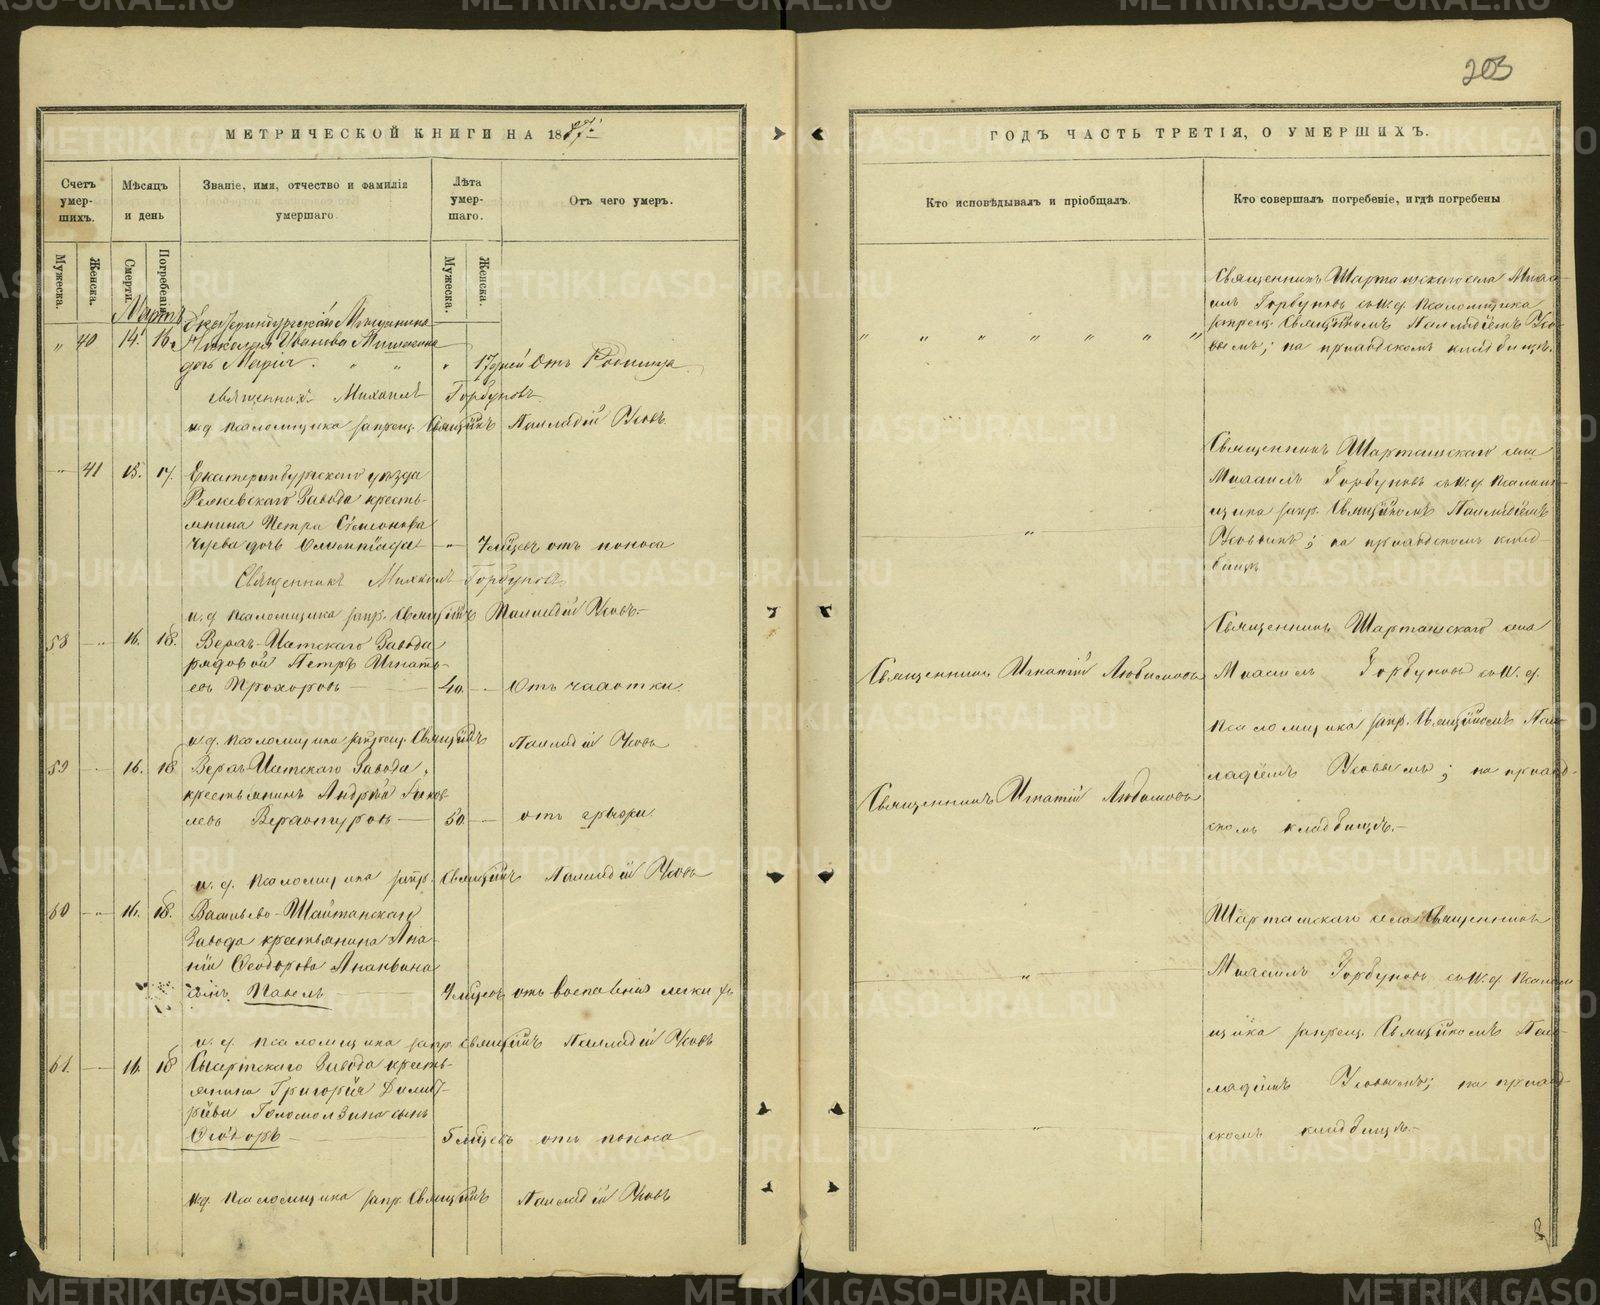 203
МЕТРИЧЕСКОЙ КНИГИ НА 1887.
Счетъ умерш­ихъ.
Мѣсяцъ и день
Званіе, имя, отчество и фамилія умершаго.
Лѣта умершаго.
Отъ чего умеръ.
Мужеска.
Женска.
Смерти.
Погребенія.
Мужеска.
Женска.
Мартъ
Екатеринбургскаго Мещанина
" 40 14. 16. Николая Иванова
дочь Марія. " " " 17 дней Отъ Родимца
священникъ Михаилъ Горбуновъ
и.д. псаломщика запрещ. Священникъ Палладій Усовъ.
" 41 15. 17. Екатеринбургскаго уѣзда
Режевскаго Завода кресть-
янина Петра Симонова
дочь Олимпіада " 7 мѣсяцевъ отъ поноса
Священникъ Михаилъ Горбуновъ
и.д. псаломщика запр. Священникъ Палладій Усовъ.
58 " 16. 18. Верхъ-Исетскаго Завода
рядовой Петръ Игнать-
евъ Прохоровъ 40. " Отъ чахотки.
и.д. псаломщика запрещ. Священникъ Палладій Усовъ
59 16. 18 Верхъ-Исетскаго Завода,
крестьянинъ Андрей Яков-
левъ Верхотуровъ 50. отъ грыжи.
и.д. псаломщика запр. Священникъ Палладій Усовъ
60 " 16. 18. Васильево-Шайтанскаго
Завода крестьянина Ана-
нія Ѳеодорова Ананьина
сынъ Павелъ мѣсяцевъ отъ воспаленія легкихъ
и.д. псаломщика запр. Священникъ Палладій Усовъ
61. 16. 18 Сысертскаго Завода кресть-
янина Григорія Димит-
ріева Голомолзина сынъ
Ѳеодоръ 5 мѣсяцевъ отъ поноса
и.д. псаломщика запр. Священникъ Палладій Усовъ
ГОДЪ ЧАСТЬ ТРЕТІЯ, О УМЕРШИХЪ.
Кто исповѣдывалъ и пріобщалъ.
Кто совершалъ погребеніе, и гдѣ погребены
" " " " " " "
Священникъ Шарташскаго села Миха-
илъ Горбуновъ съ и.д. псаломщика
запрещ. Священникомъ Палладіемъ Усо-
вымъ; на приходскомъ кладбищѣ.
"
Священникъ Шарташскаго села
Михаилъ Горбуновъ съ и.д. псалом-
щика запр. Священникомъ Палладіемъ
Усовымъ; на приходскомъ клад-
бищѣ
Священникъ Игнатій Любимовъ
Священникъ Игнатій Любимовъ
Священникъ Шарташскаго села
Михаилъ Горбуновъ съ и.д.
псаломщика запр. Священникомъ Пал-
ладіемъ Усовымъ; на приход-
скомъ кладбищѣ.
"
"
Шарташскаго села Священникъ
Михаилъ Горбуновъ съ и.д. псалом-
щика запрещ. Священникомъ Пал-
ладіемъ Усовымъ; на приход-
скомъ кладбищѣ.
METRIKI.GASO-URAL.RU